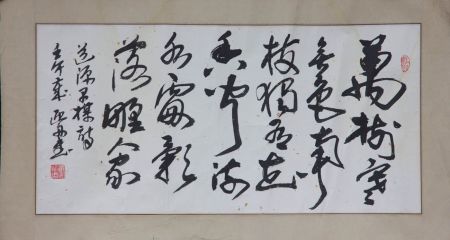 萬樹寒
無色南
枝獨有花
香聞流
水處影
落野人家
道源早梅詩
壬午